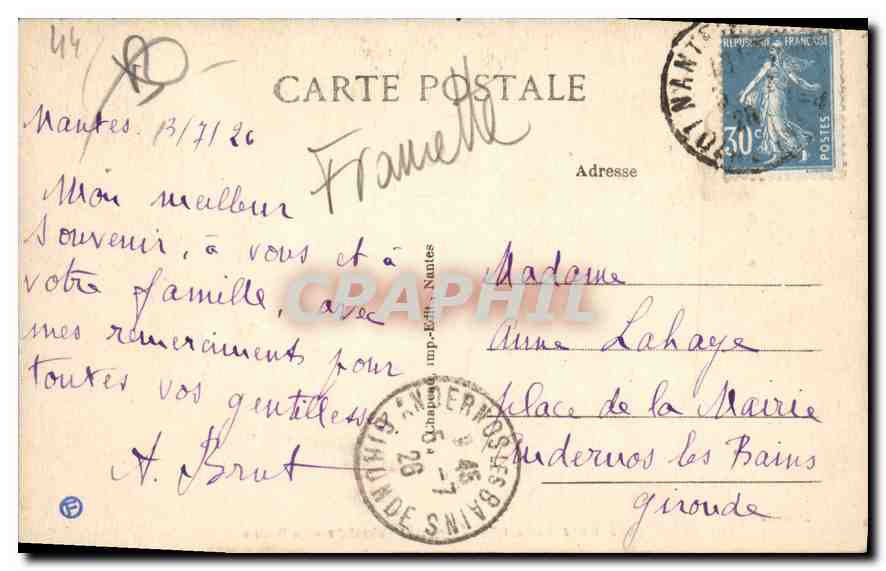 44
CARTE POSTALE
Nantes. 13/7/26
Framette
Adresse
REPUBLIQUE FRANÇAISE
30c
POSTES
NANTES
Mon meilleur
souvenir, à vous et à
votre famille, avec
mes remerciements pour
toutes vos gentillesses
A. Brut
Chapeau, Imp.-Edit., Nantes
CPAPHIL
Madame
Anne Lahaye
place de la Mairie
Andernos les Bains
Gironde
ANDERNOS-LES-BAINS
GIRONDE